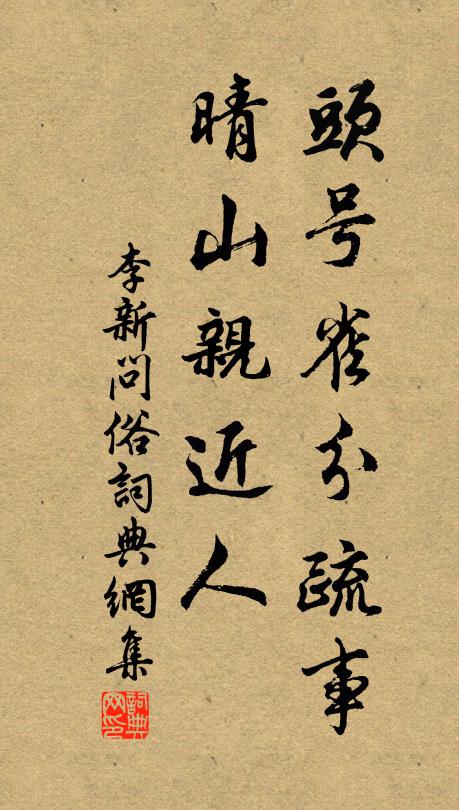 頭号雀分疏事
晴山親近人
李新問俗詞典網集
詞典网印